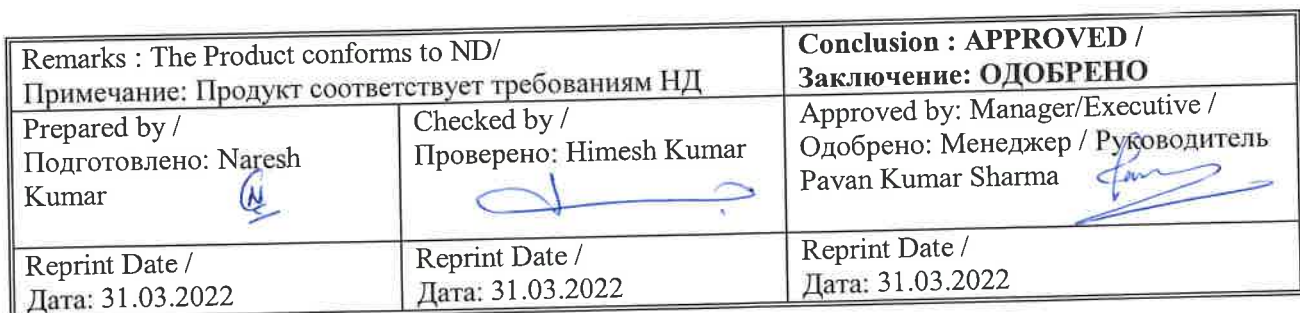 Remarks : The Product conforms to ND/
Примечание: Продукт соответствует требованиям НД
Conclusion : APPROVED /
Заключение: ОДОБРЕНО
Prepared by /
Подготовлено: Naresh
Kumar
Checked by /
Проверено: Himesh Kumar
Approved by: Manager/Executive /
Одобрено: Менеджер / Руководитель
Pavan Kumar Sharma
Reprint Date /
Дата: 31.03.2022
Reprint Date /
Дата: 31.03.2022
Reprint Date /
Дата: 31.03.2022